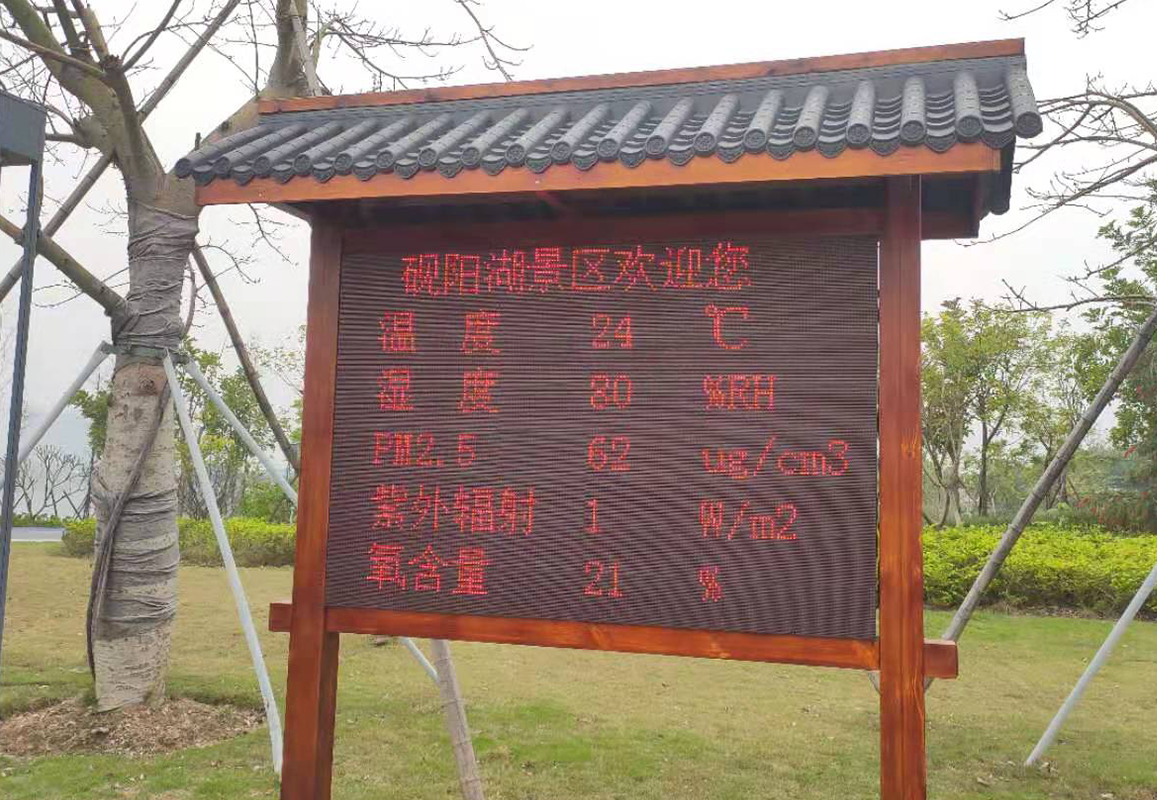 砚阳湖景区欢迎您
温 度 24 ℃
湿 度 80 %RH
PM2.5 62 ug/cm3
紫外辐射 1 W/m2
氧含量 21 %